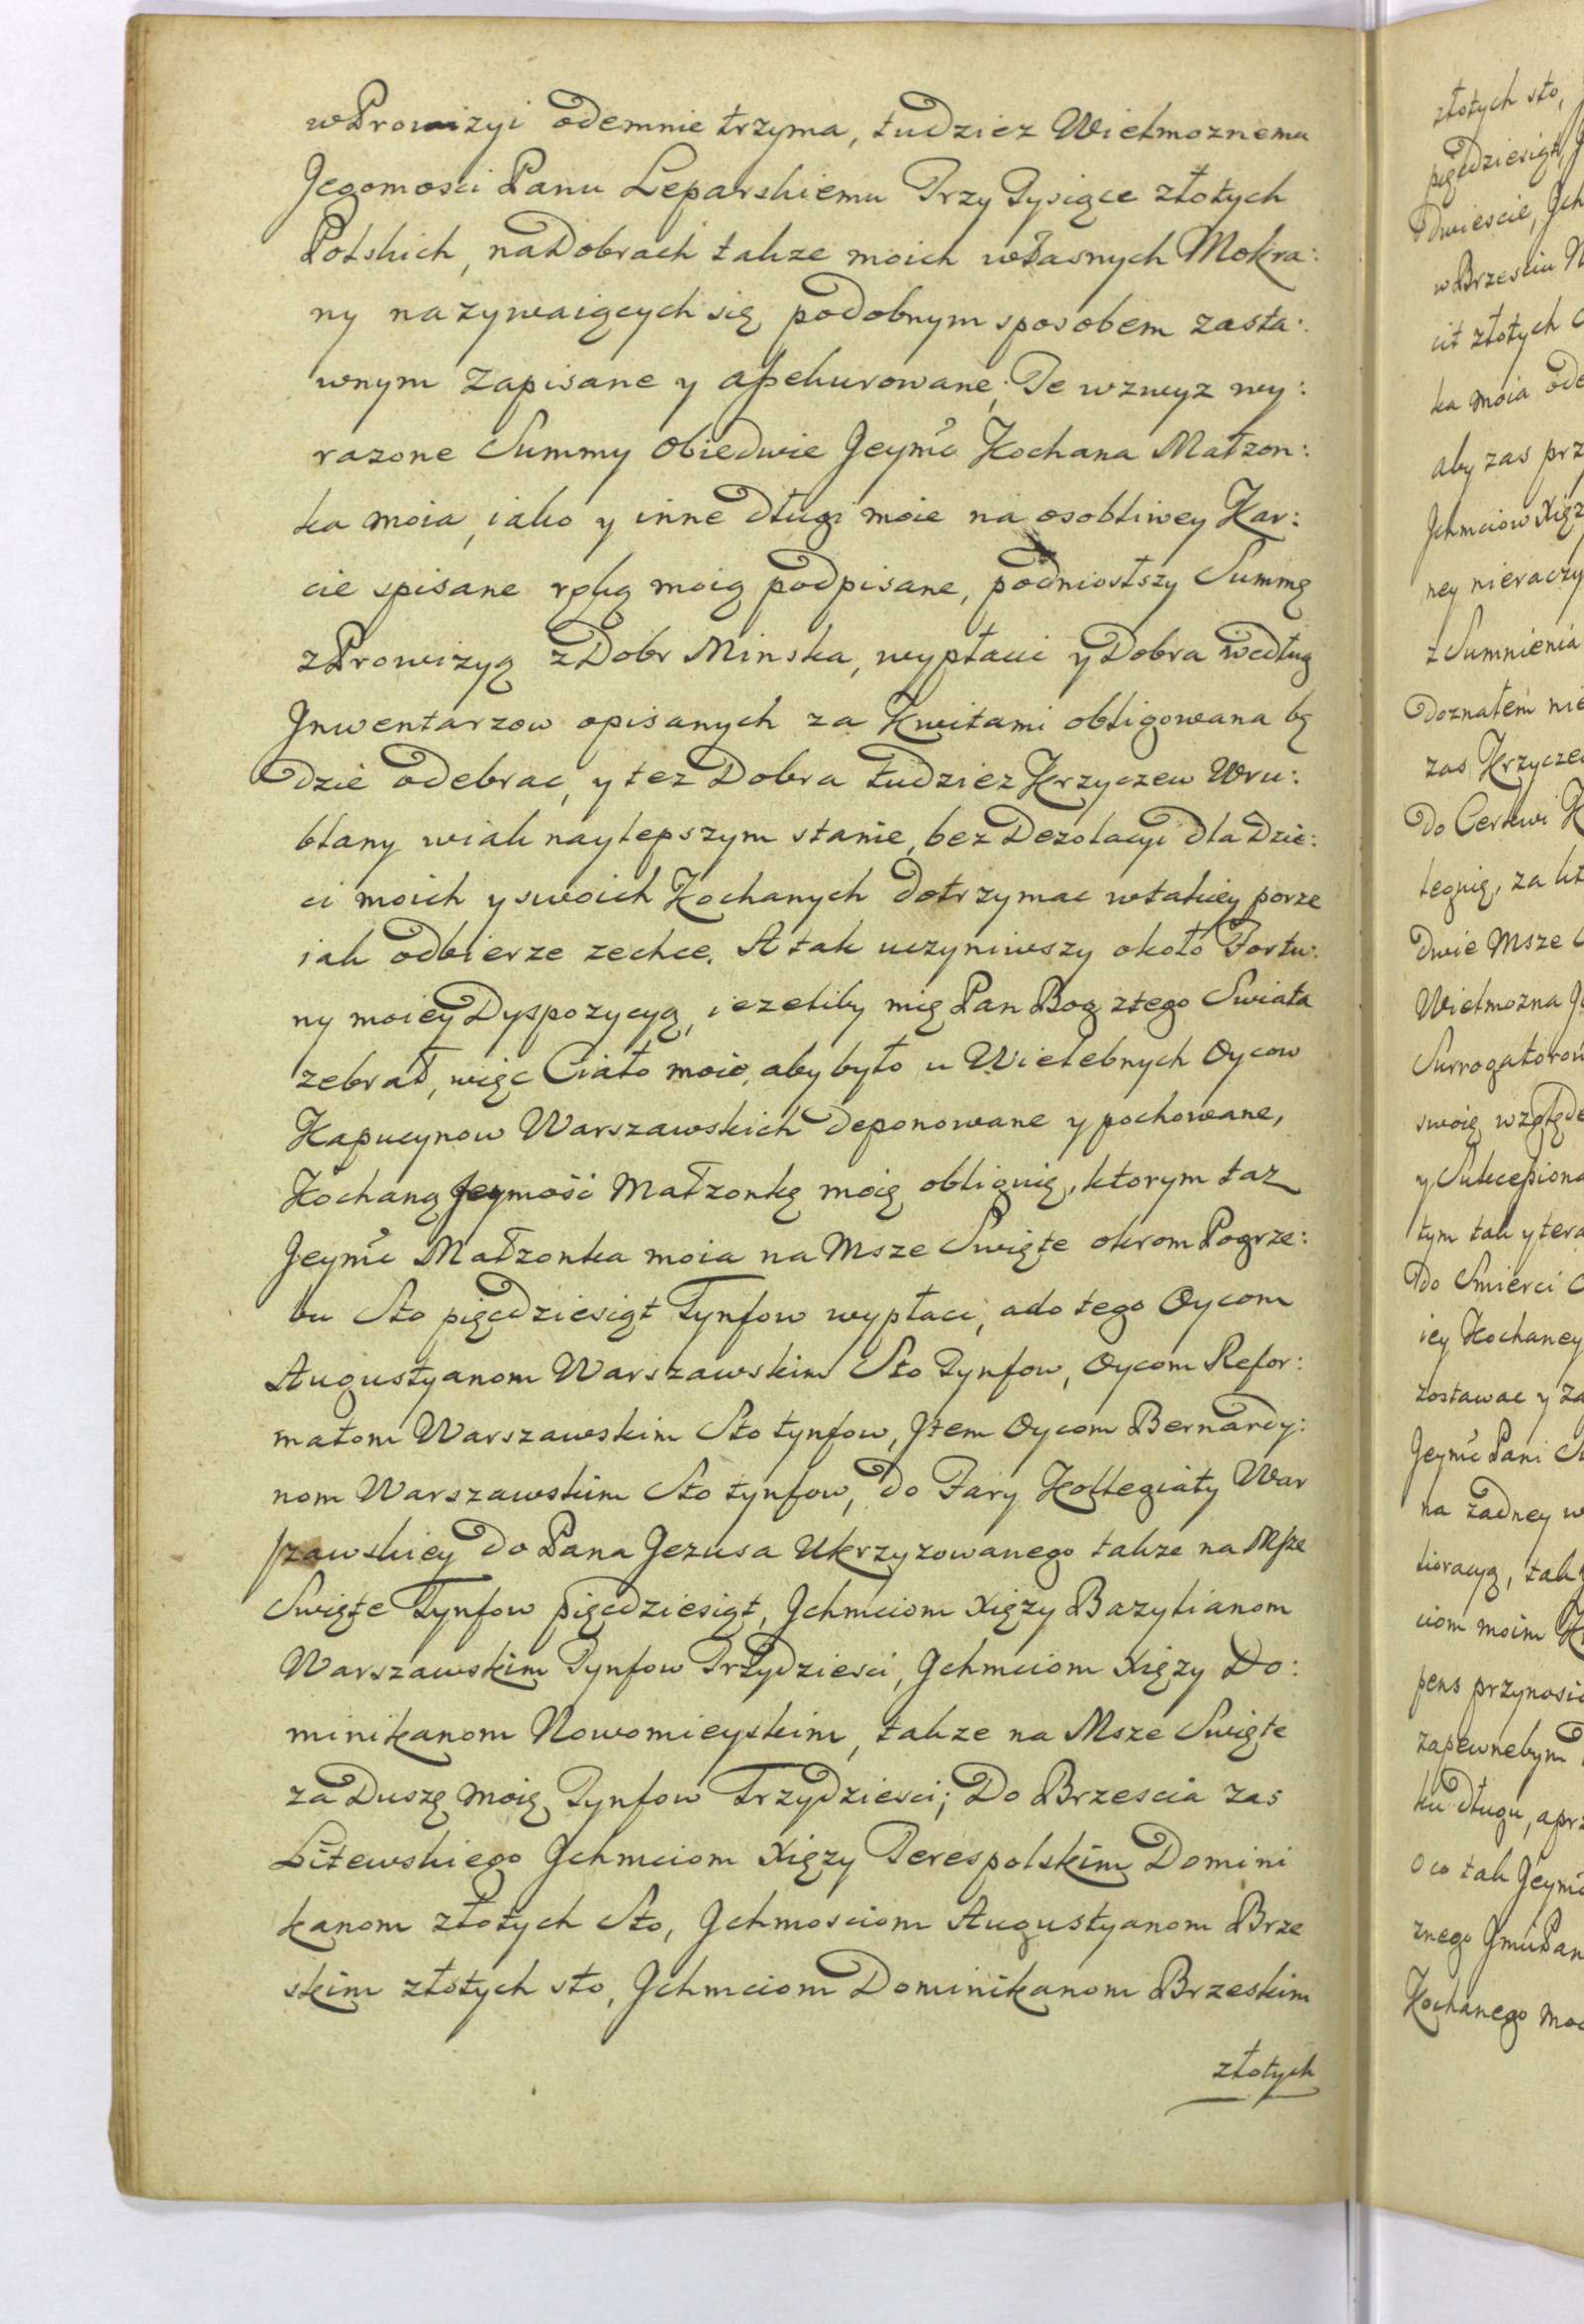 w Prowizyi odemnie trzyma, tudziez Wielmoznemu
Jegomosci Panu Leparskiemu Trzy Tysiące złotych
Polskich, na Dobrach takze moich własnych Mokra:
ny nazywaiących się podobnym sposobem zasta:
wnym zapisane y assekurowane; Te wzwyz wy:
razone Summy obiedwie Jeymć Kochana Małzon:
ka moia, iako y inne długi moie na osobliwey Kar:
cie spisane ręką moią podpisane, podniosłszy Summę
z Prowizyą z Dobr Minska, wypłaci y Dobra według
Jnwentarzow opisanych za Kwitami obligowana bę
dzie odebrac, y tez Dobra tudziez Krzyczew Wru:
blany w iak naylepszym stanie, bez Dezolacyi dla Dzie:
ci moich y swoich Kochanych dotrzymac w takiey porze
iak odbierze zechce. A tak uczyniwszy około Fortu:
ny moiey Dyspozycyą, iezeliby mię Pan Bog z tego Swiata
zebrał, więc Ciało moie, aby było u Wielebnych Oycow
Kapucynow Warszawskich deponowane y pochowane,
Kochaną Jeymość Małzonkę moię obliguię, ktorym taz
Jeymć Małzonka moia na Msze Swięte okrom Pogrze:
bu Sto pięcdziesiąt Tynfow wypłaci, a do tego Oycom
Augustyanom Warszawskim Sto Tynfow, Oycom Refor:
matom Warszawskim Sto tynfow, Jtem Oycom Bernardy:
nom Warszawskim Sto tynfow, do Fary Kollegiaty War
szawskiey do Pana Jezusa Ukrzyzowanego takze na Msze
Swięte Tynfow pięcdziesiąt, Jchmciom Xięzy Bazylianom
Warszawskim Tynfow Trzydziesci, Jchmciom Xięzy Do:
minikanom Nowomieyskim, takze na Msze Swięte
za Duszę moię Tynfow Trzydziesci; Do Brzescia zas
Litewskiego Jchmciom Xięzy Terespolskim Domini
kanom złotych Sto, Jchmosciom Augustyanom Brze
skim złotych sto, Jchmciom Dominikanom Brzeskim
złotych
złotych sto,
pięcdziesiąt,
dwiescie, Jch
w Brzesciu
cit złotych
ka moia ode
aby zas prz
Jchmciow Xięz
ney nieraczy
z Sumnienia
doznałem nie
zas Krzycze
do Cerkwi
dwie Msze
Wielmozna
Surrogatorow
swoię względe
tym tak y tera
do Smierci
iey Kochaney
zostawac y za
Jeymć Pani
na zadney w
lioracyą, tak
ciom moim
pens przynosi
zapewnebym
ku długu, a prz
o co tak Jeymć
znego Jmći Pan
Kochanego mo